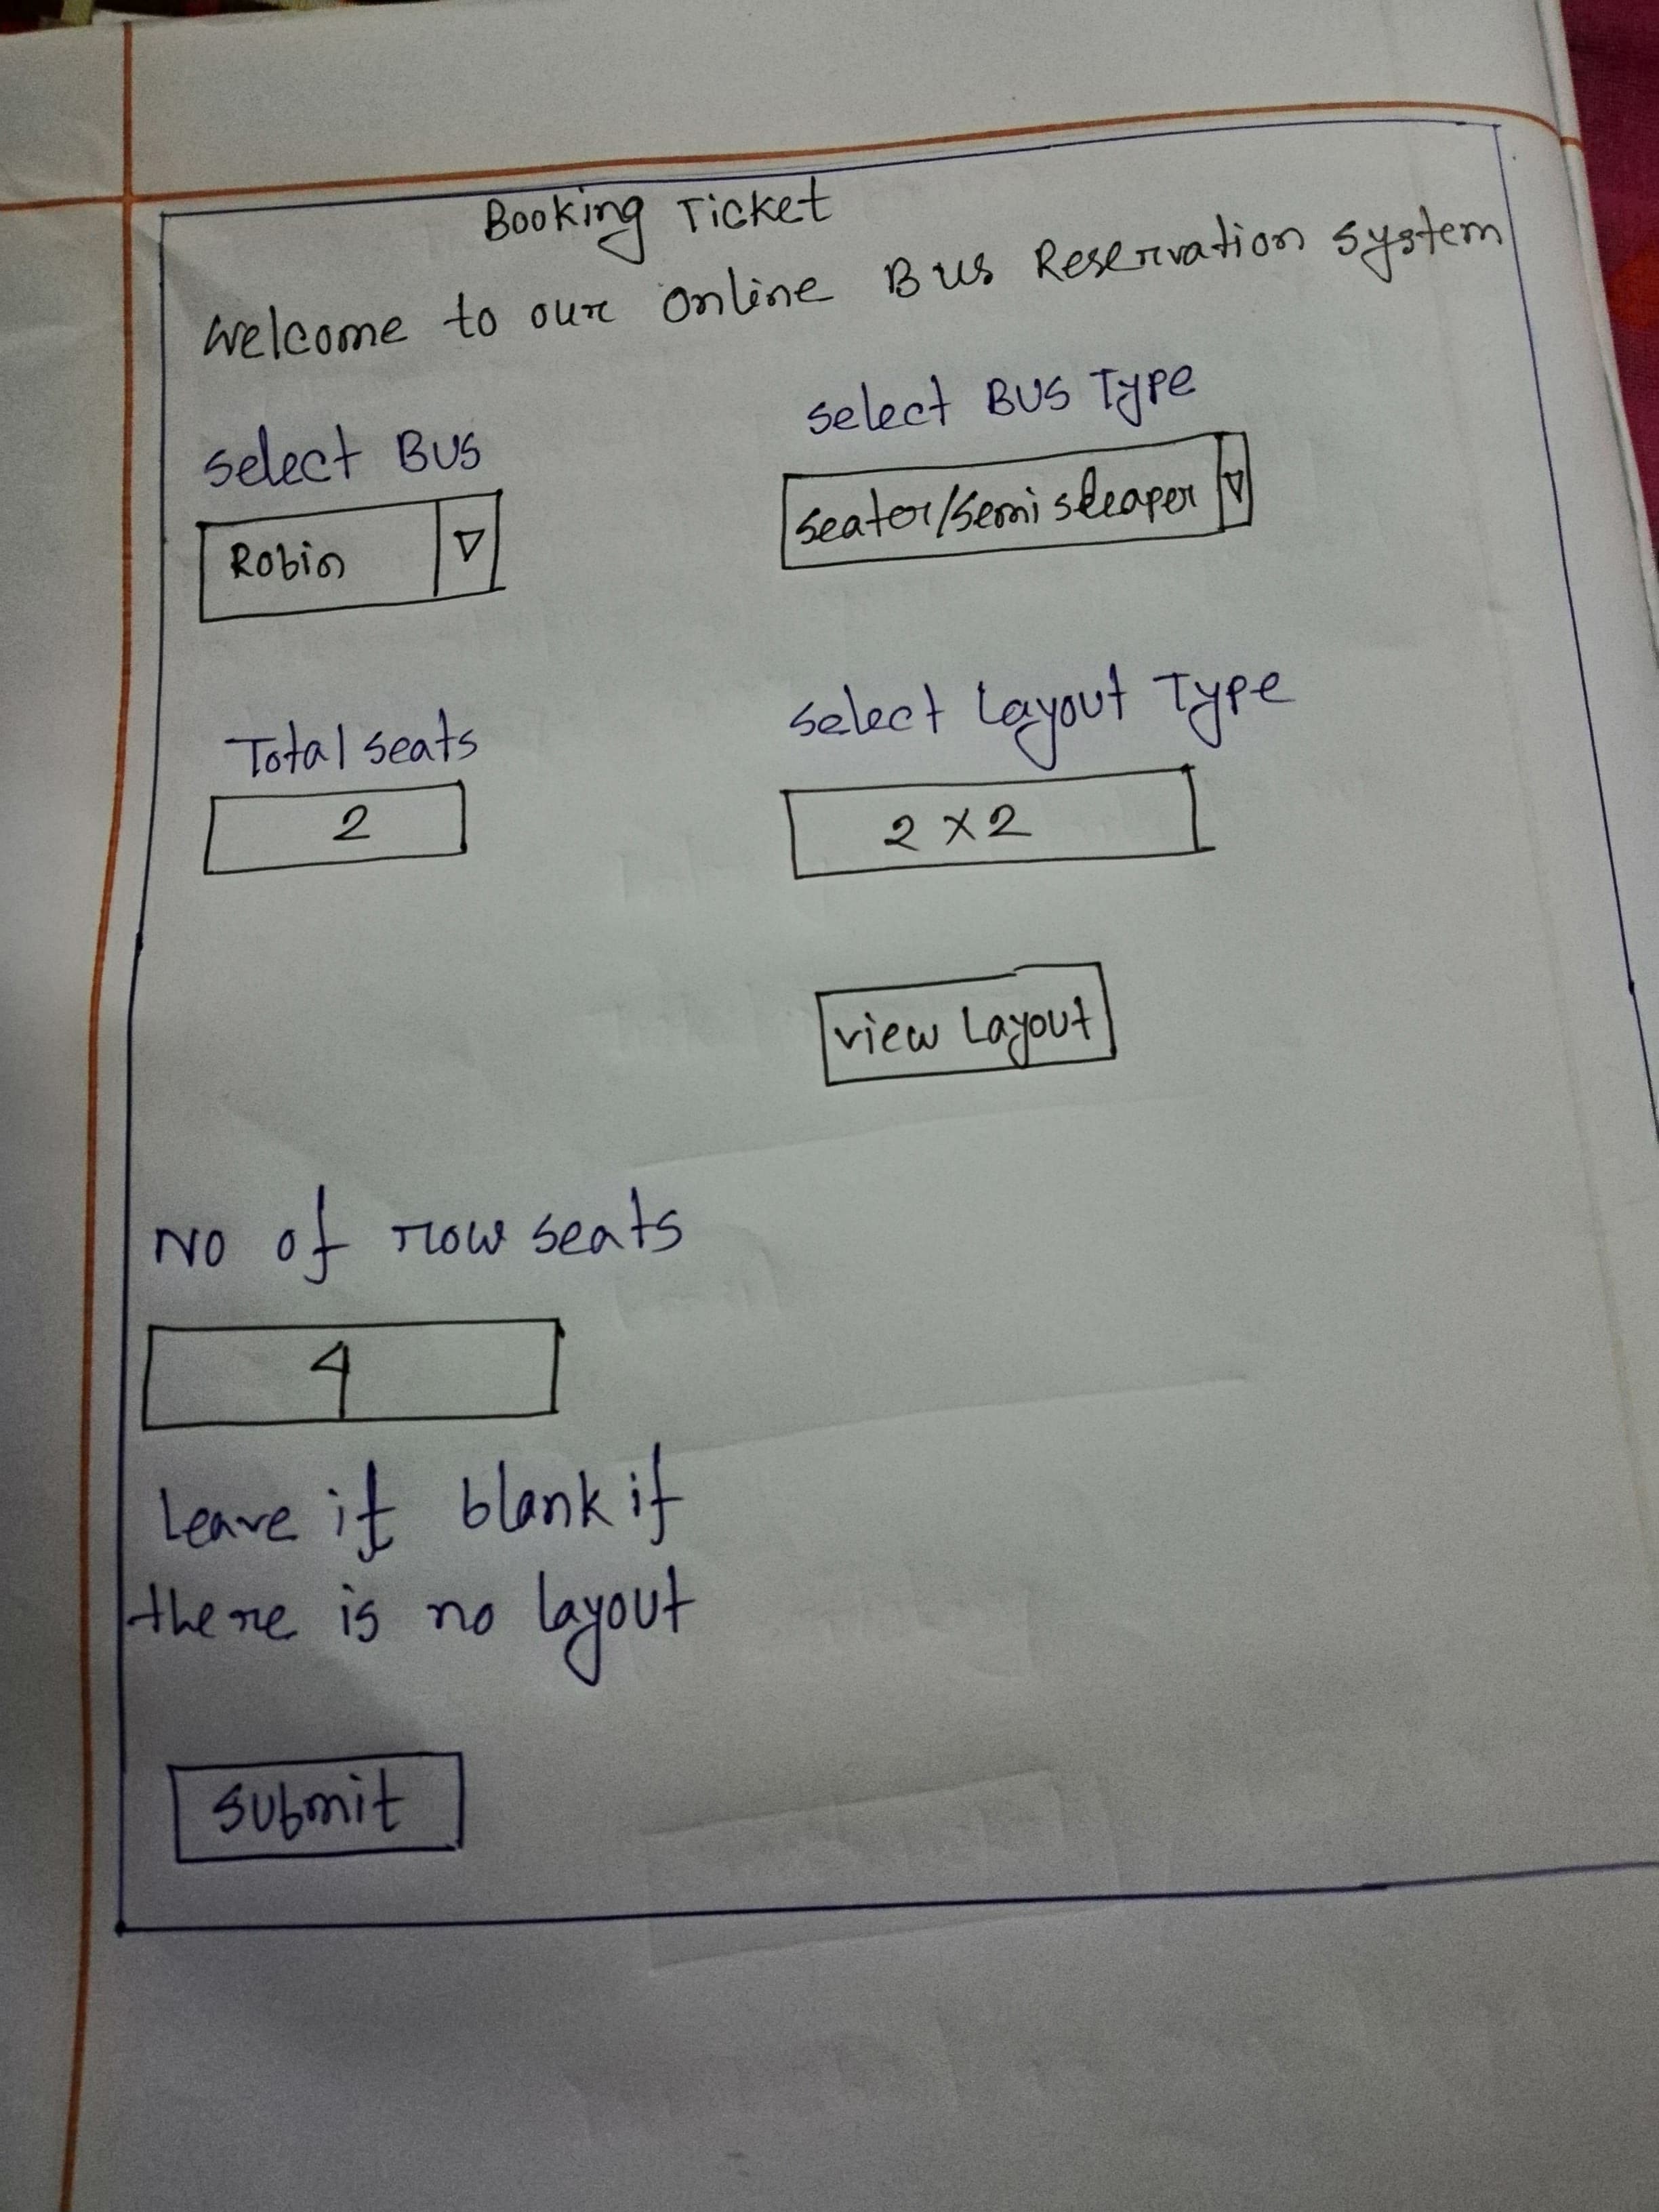 Booking Ticket
Welcome to our Online Bus Reservation System
Select BUS
Select BUS Type
Robin
Seater/Semi sleaper
Total seats
Select Layout Type
2
2 x 2
view Layout
NO of row seats
4
Leave it blank if
there is no layout
Submit